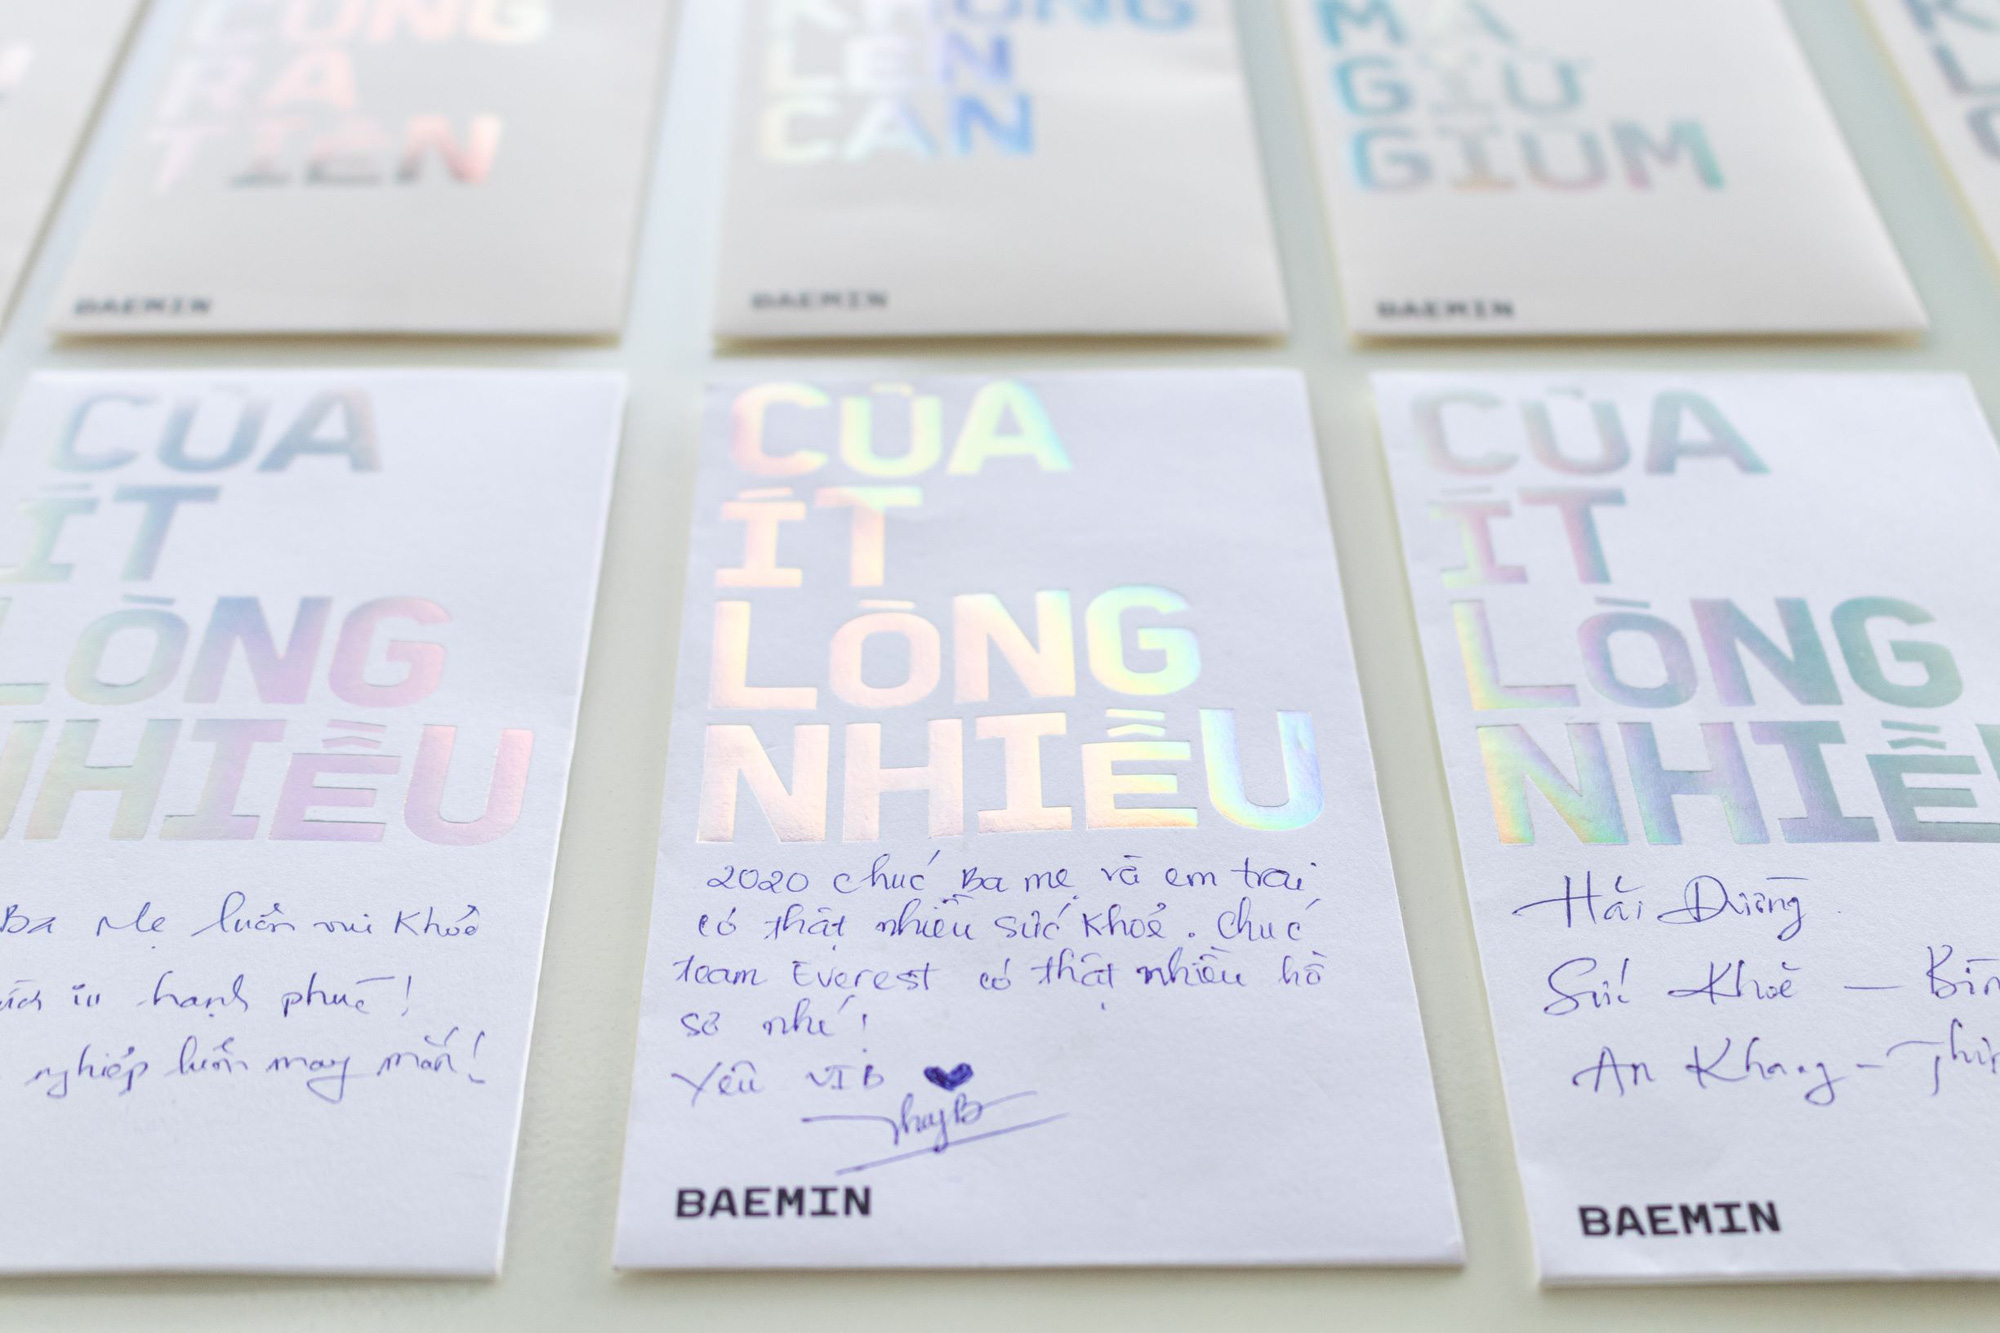 CŨNG
RA
TIỀN
BAEMIN
KHÔNG
LÊN
CÂN
BAEMIN
MÁ
GIỮ
GIÙM
BAEMIN
CỦA
ÍT
LÒNG
NHIỀU
Ba Mẹ luôn vui khoẻ
hạnh phúc!
nghiệp luôn may mắn!
CỦA
ÍT
LÒNG
NHIỀU
2020 chúc Ba mẹ và em trai
có thật nhiều sức khoẻ. Chúc
team Everest có thật nhiều hồ
sơ nhé!
Yêu VIB
BAEMIN
CỦA
ÍT
LÒNG
NHIỀ
Hải Dương
Sức Khoẻ — Bìn
An Khang - Thị
BAEMIN